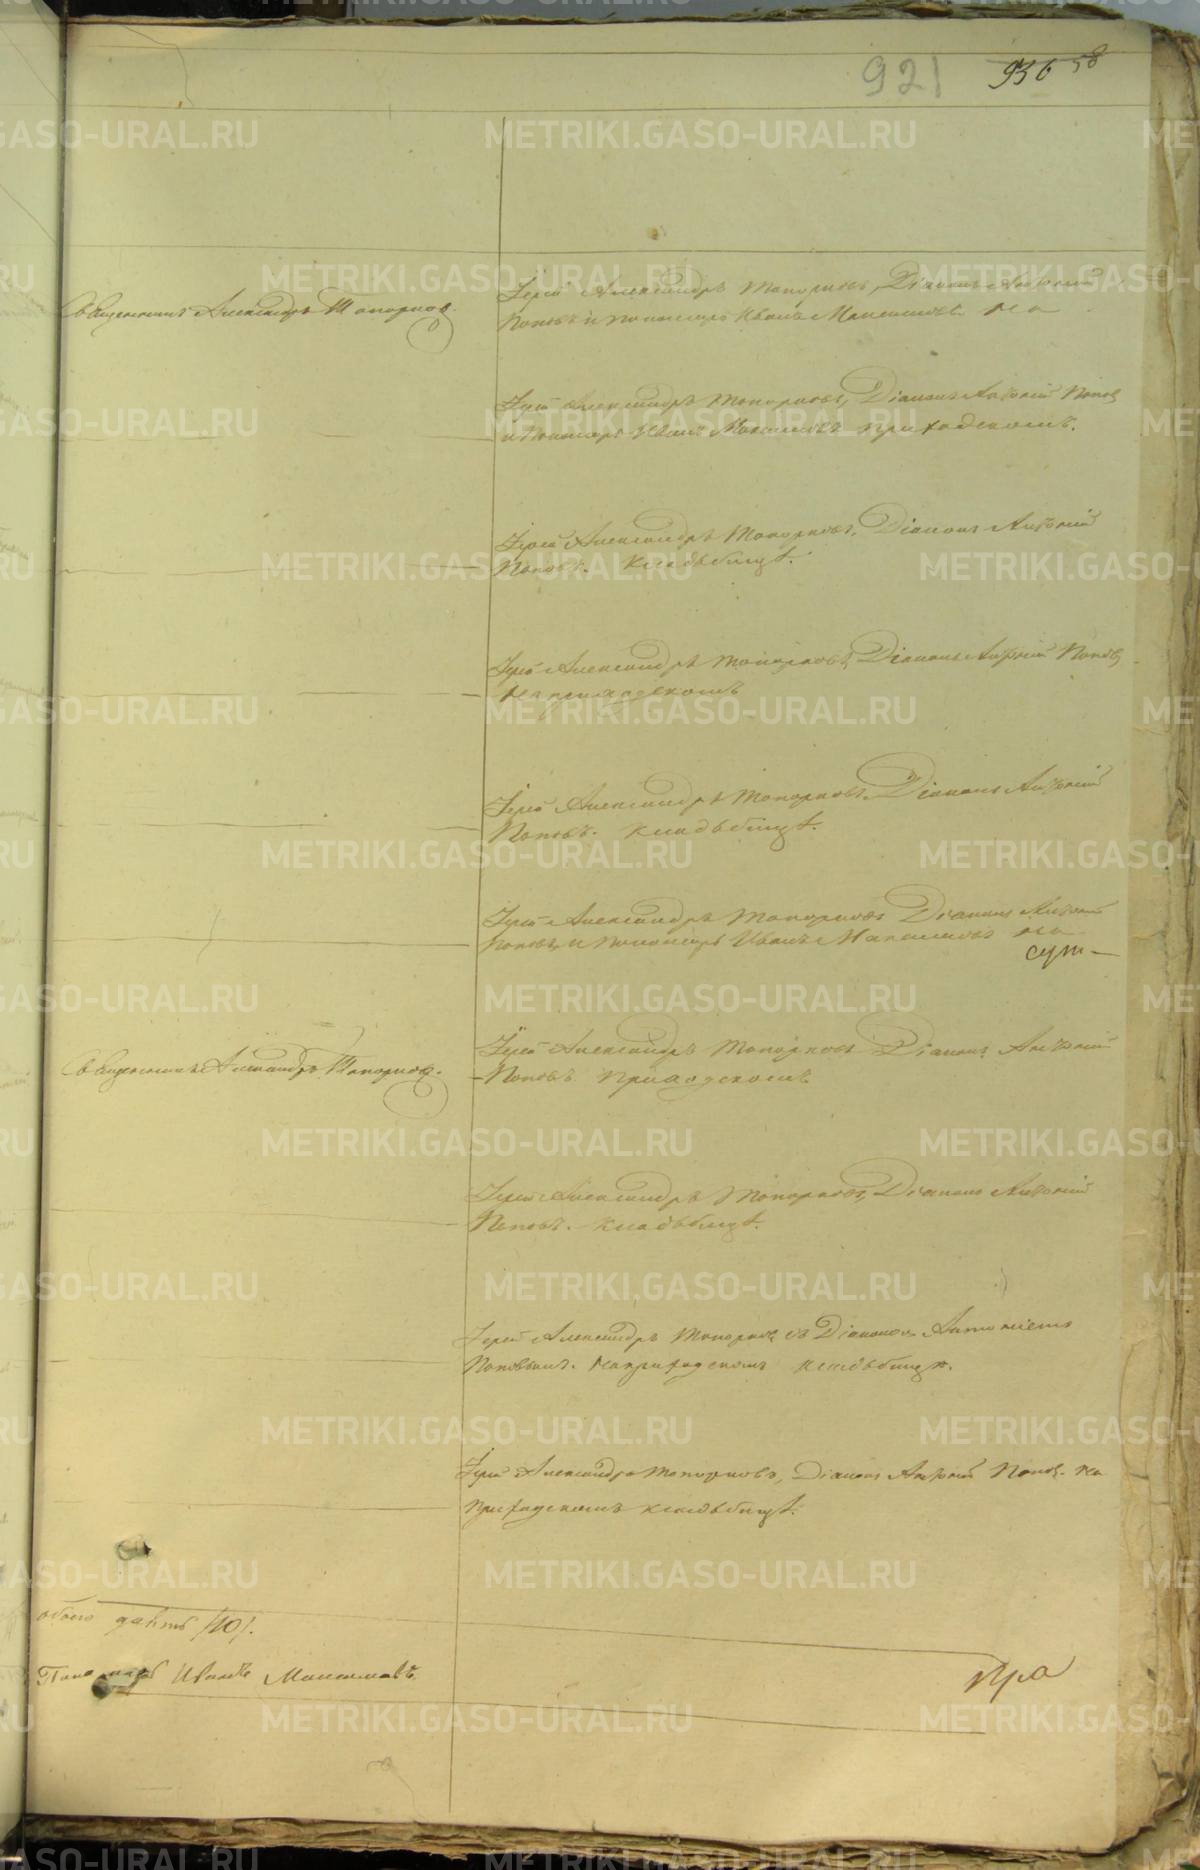 921 936 58
Священникъ Александръ Топорков.
Іерей Александръ Топорковъ, Діаконъ Антоній
Поповъ и Пономарь Иванъ Максимовъ На
Іерей Александръ Топорковъ, Діаконъ Антоній Попов
и Пономарь Иванъ Максимовъ приходскомъ.
Іерей Александръ Топорковъ, Діаконъ Антоній
Поповъ. Кладъбищѣ.
Іерей Александръ Топорковъ, Діаконъ Антоній Попов
на приходскомъ
Іерей Александръ Топорковъ, Діаконъ Антоній
Поповъ. Кладъбищѣ.
Іерей Александръ Топорковъ Діаконъ Антоній
Поповъ и Пономарь Иванъ Максимовъ На
сут—
Священникъ Александръ Топорков.
Іерей Александръ Топорковъ Діаконъ Антоній
Поповъ приходскомъ
Іерей Александръ Топорковъ, Діаконъ Антоній
Поповъ. Кладъбищѣ.
Іерей Александръ Топорков съ Діакономъ Антоніемъ
Поповымъ. На приходскомъ кладъбищѣ.
Іерей Александръ Топорковъ, Діаконъ Антоній Попов. На
приходскомъ кладъбищѣ.
обоего /10/.
Пономарь Иванъ Максимовъ.
Пра
METRIKI.GASO-URAL.RU